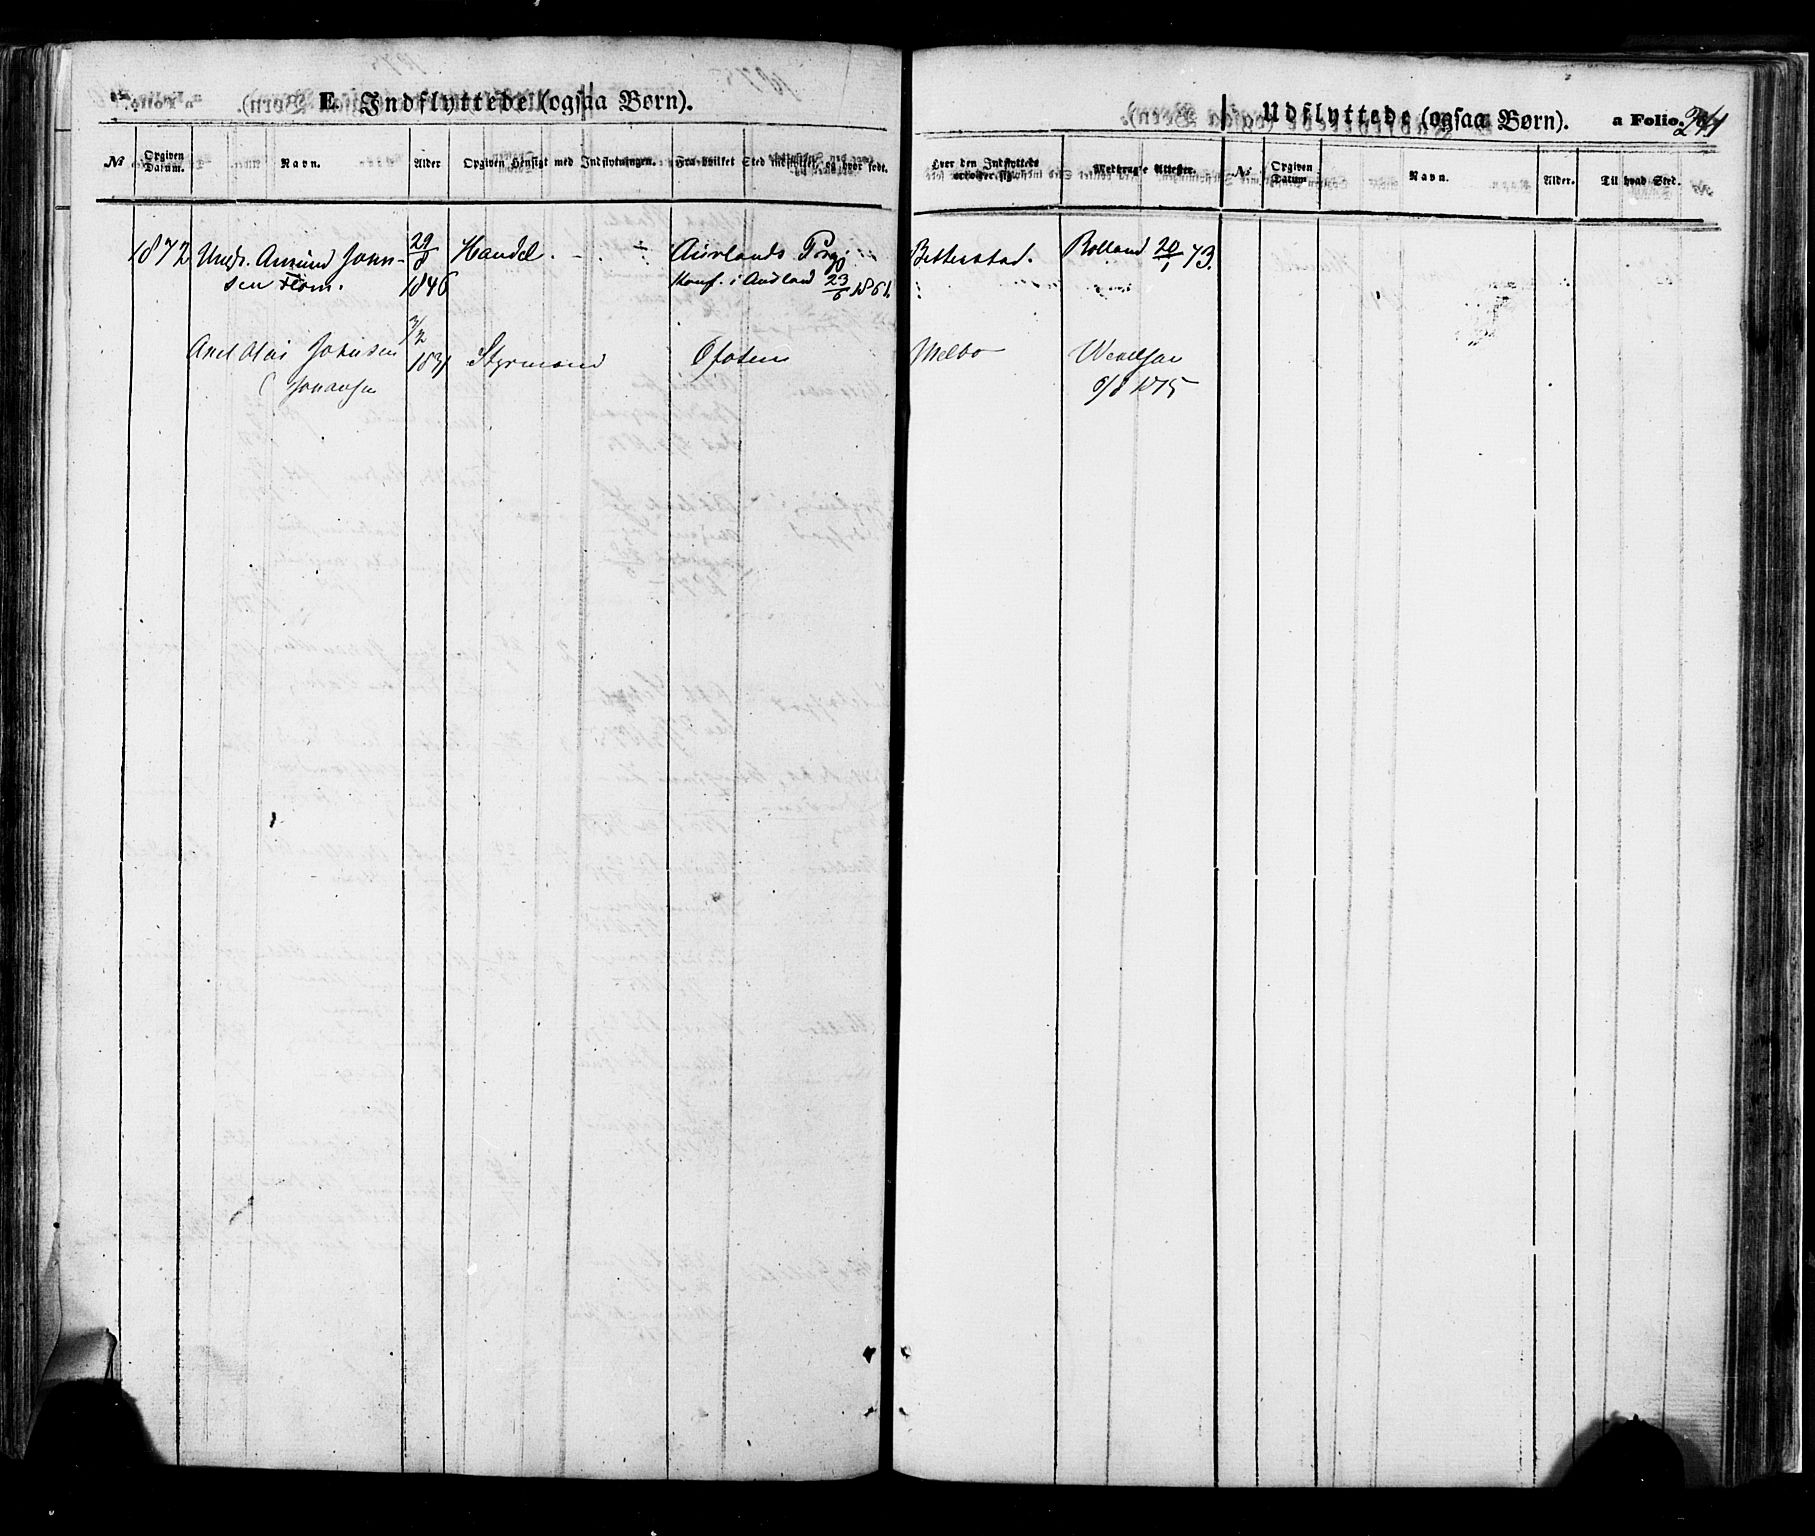 E. Indflyttede (ogsaa Børn).
Udflyttede (ogsaa Børn). a Folio. 241
No Opgiven Datum. Navn. Alder Opgiven Hensigt med Indflytningen. Fra hvilket Sted indflyttet, og hvor født.
Hvor den Indflyttede opholder sig. Medbragte Attester. No Opgiven Datum Navn. Alder. Til hvad Sted.
1872 Ungk. Amund John- 29/8 Handel. Aurlands Prgj. Bitterstad. Rolland 20/1 73.
sen Flom. 1846 Konf. i Aurland 23/6 1861.
3/2
Axel Olai Johnsen 1831 Styrmand Ofoten Melbo
Johansen 6/8 1875